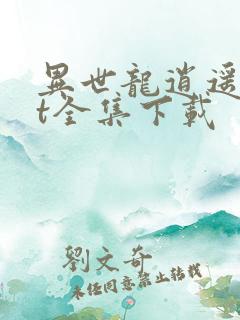 異世龍逍遥
t全集下載
劉文奇
未經同意禁止轉載